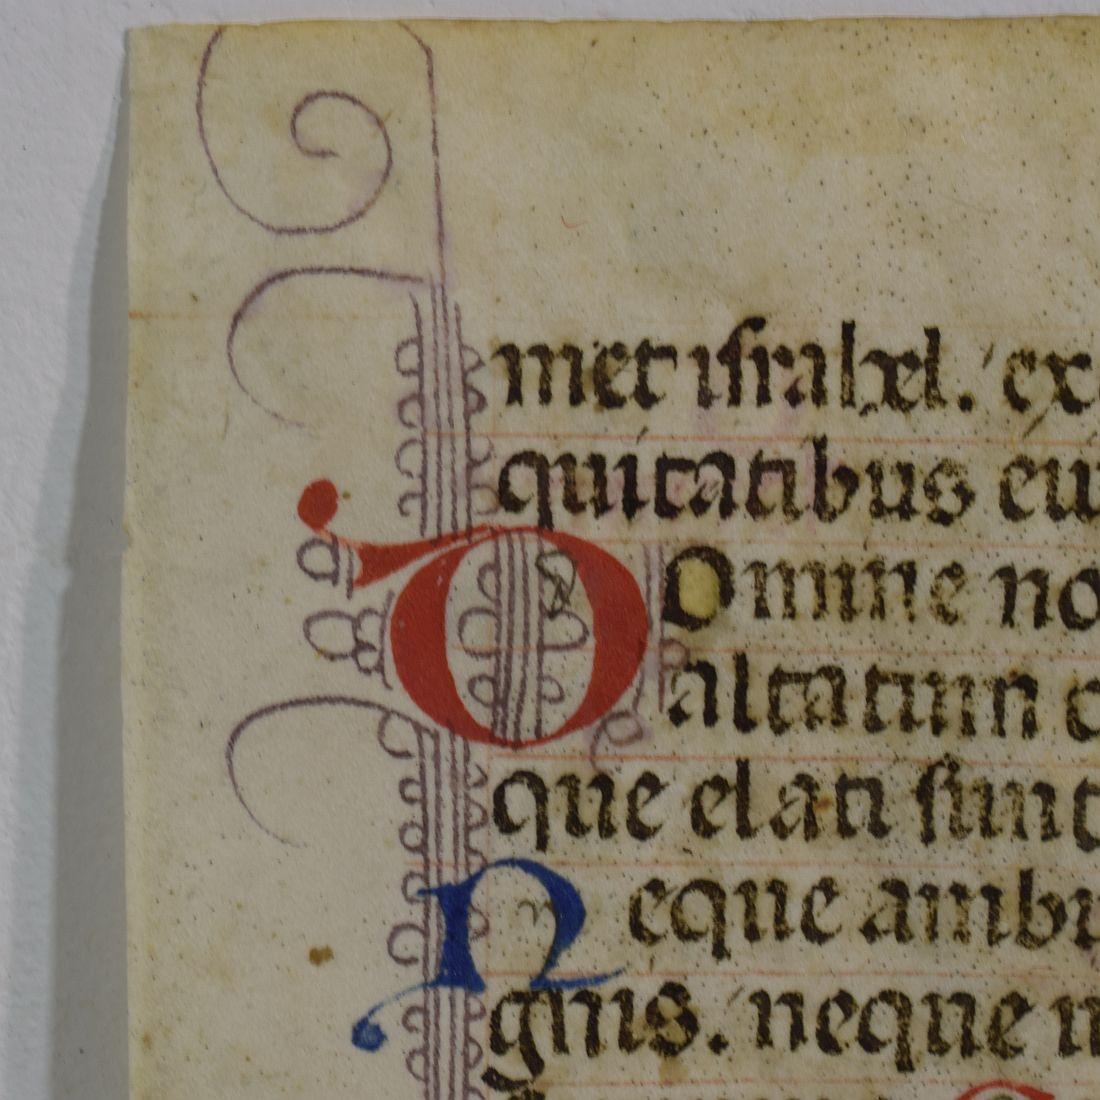 met israhel. ex
quitatibus eiu
DOmine no
altatum
que elati sunt
Neque ambu
gnis. neque